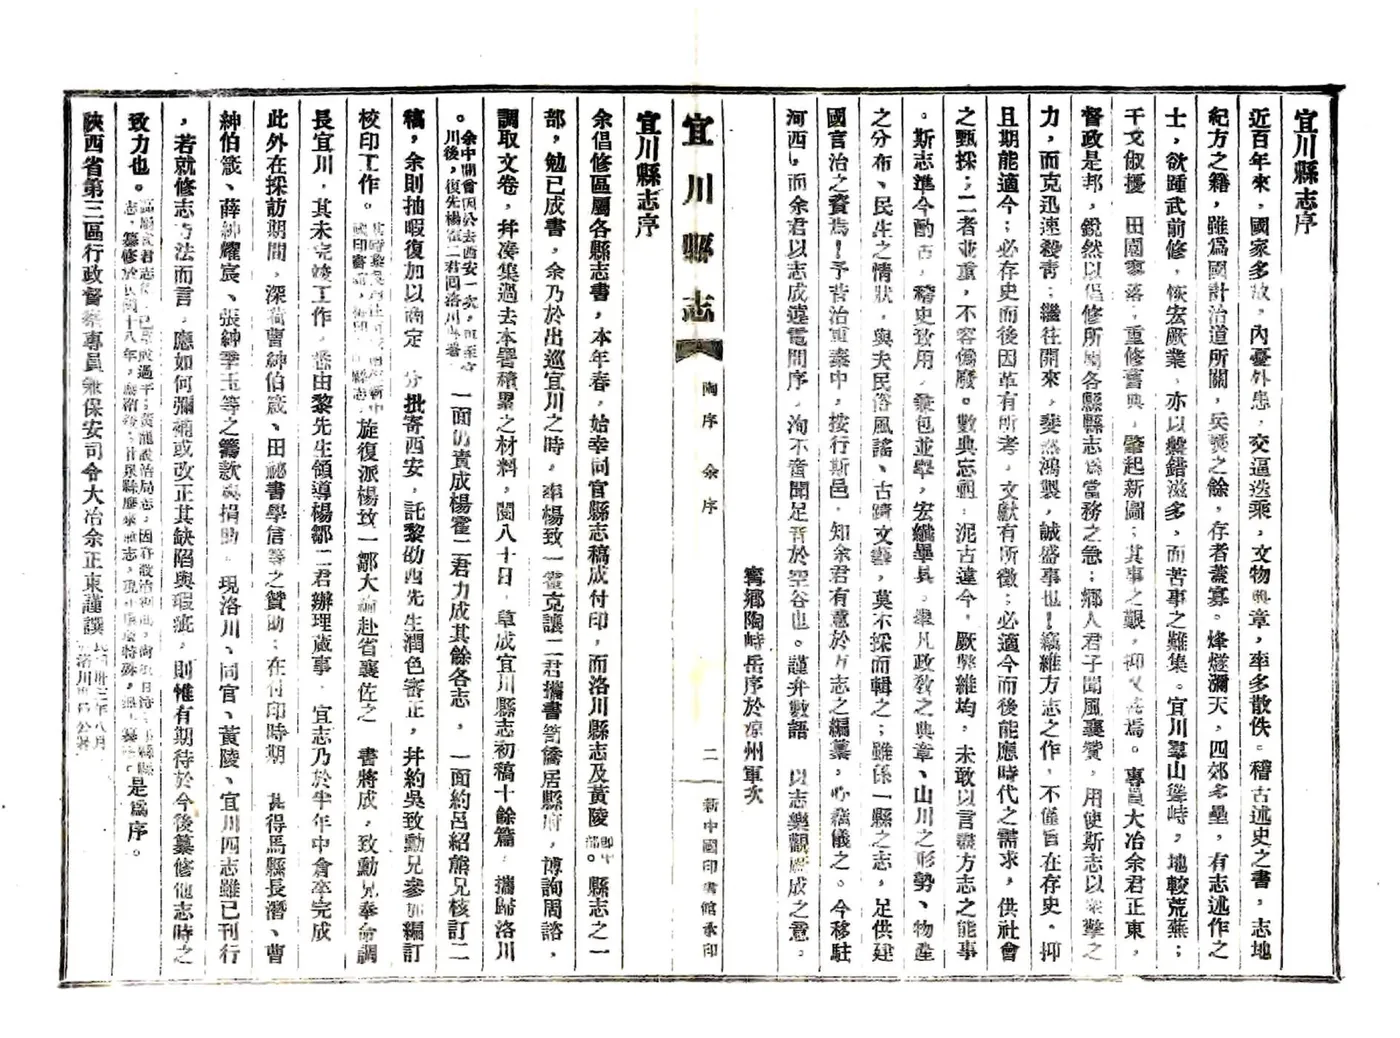 宜川縣志序
近百年來，國家多故，內憂外患，交逼迭乘，文物典章，率多散佚。稽古述史之書，志地
紀方之籍，雖爲國計治道所關，兵燹之餘，存者蓋寡。烽燧瀰天，四郊多壘，有志述作之
士，欲踵武前修，恢宏厥業，亦以繫錯滋多，而苦事之難集。宜川羣山聳峙，地較荒蕪；
干戈俶擾，田園寥落，重修舊典，肇起新圖；其事之艱，抑又甚焉。專員大冶余君正東，
督政是邦，銳然以倡修所屬各縣縣志爲當務之急；鄉人君子聞風襄贊，用使斯志以衆擎之
力，而克迅速殺靑；繼往開來，斐然鴻製，誠盛事也！竊維方志之作，不僅旨在存史，抑
且期能適今；必存史而後因革有所考，文獻有所徵；必適今而後能應時代之需求，供社會
之甄採；二者並重，不容偏廢。數典忘祖，泥古違今，厥弊維均，未敢以言盡方志之能事
。斯志準今酌古，稽史致用，兼包並舉，宏纖畢具。舉凡政敎之典章、山川之形勢、物產
之分布、民生之情狀，與夫民俗風謠、古蹟文藝，莫不採而輯之；雖係一縣之志，足供建
國言治之資焉！予昔治軍秦中，按行斯邑，知余君有意於方志之編纂，心竊儀之。今移駐
河西，而余君以志成遠電問序，洵不啻聞足音於空谷也。謹弁數語，以志樂觀厥成之意。
甯鄉陶峙岳序於涼州軍次
宜川縣志
陶序 余序
二
新中國印書館承印
宜川縣志序
余倡修區屬各縣志書，本年春，始幸同官縣志稿成付印，而洛川縣志及黃陵即中部。縣志之一
部，勉已成書，余乃於出巡宜川之時，率楊致一霍克讓二君攜書笥僑居縣府，博詢周諮，
調取文卷，幷湊集過去本署積累之材料，閱八十日，草成宜川縣志初稿十餘篇，攜歸洛川
。余中間會因公去西安一次，川後，復先楊霍二君回洛川本署 一面仍責成楊霍二君力成其餘各志，一面約呂紹熊兄核訂二
稿，余則抽暇復加以商定，分批寄西安，託黎劭西先生潤色審正，幷約吳致勳兄參加編訂
校印工作。旋復派楊致一鄒大鏞赴省襄佐之。書將成，致勳兄奉命調
長宜川，其未完竣工作，悉由黎先生領導楊鄒二君辦理蕆事。宜志乃於半年中倉卒完成
此外在採訪期間，深荷曹紳伯箴、田祕書學信等之贊助；在付印時期，甚得馬縣長潛、曹
紳伯箴、薛紳耀宸、張紳季玉等之籌款與捐助。現洛川、同官、黃陵、宜川四志雖已刊行
，若就修志方法而言，應如何彌補或改正其缺陷與瑕疵，則惟有期待於今後纂修他志時之
致力也。是爲序。
陝西省第三區行政督察專員兼保安司令大冶余正東謹撰 民國卅三年八月 洛川專員公署